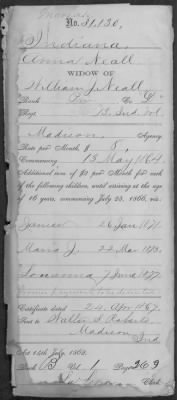 Increase
No. 31.130.
Indiana
Anna Neall
WIDOW OF
William J. Neall
Rank Pvt Co. "G"
Regt. Ind. Vol.
Madison, Agency.
Rate per Month, $ 8,
Commencing 13 May 1864.
Additional sum of $2 per month for each
of the following children, until arriving at the age
of 16 years, commencing July 25, 1866, viz:
James 26 Jan 1871.
Maria J. 22 Mar 1873.
Louanna 7 June 1877.
Certificate dated 24, Apr 1867.
Sent to Walter S. Roberts
Madison
Ind
Act 14th July, 1862.
Book B Vol. 1 Page 263
Clerk.